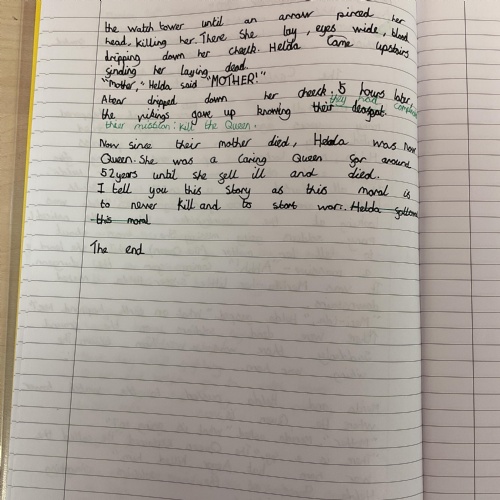 the watch tower until an arrow pirced her
head. killing her. There She lay, eyes wide, blood
dripping down her cheek. Helda Came upstairs
finding her laying dead.
"Mother," Helda said "MOTHER!"
Atear dripped down her cheeck. 5 hours later,
they had
the vikings gave up knowing their
their mission: kill the Queen.
Now since their mother died, Helda was now
Queen. She was a Caring Queen for around
52 years until she fell ill and died.
I tell you this story as this moral is
to never Kill and to start wars. Helda
this moral
The end